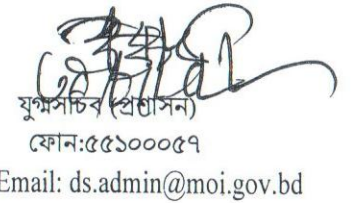 যুগ্মসচিব (প্রশাসন)
ফোন:৫৫১০০০৫৭
Email: ds.admin@moi.gov.bd